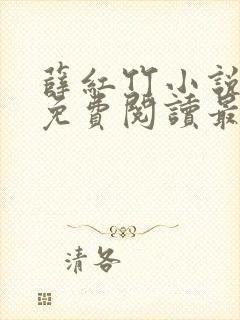 薛紅竹小說
免費閱讀最
清各